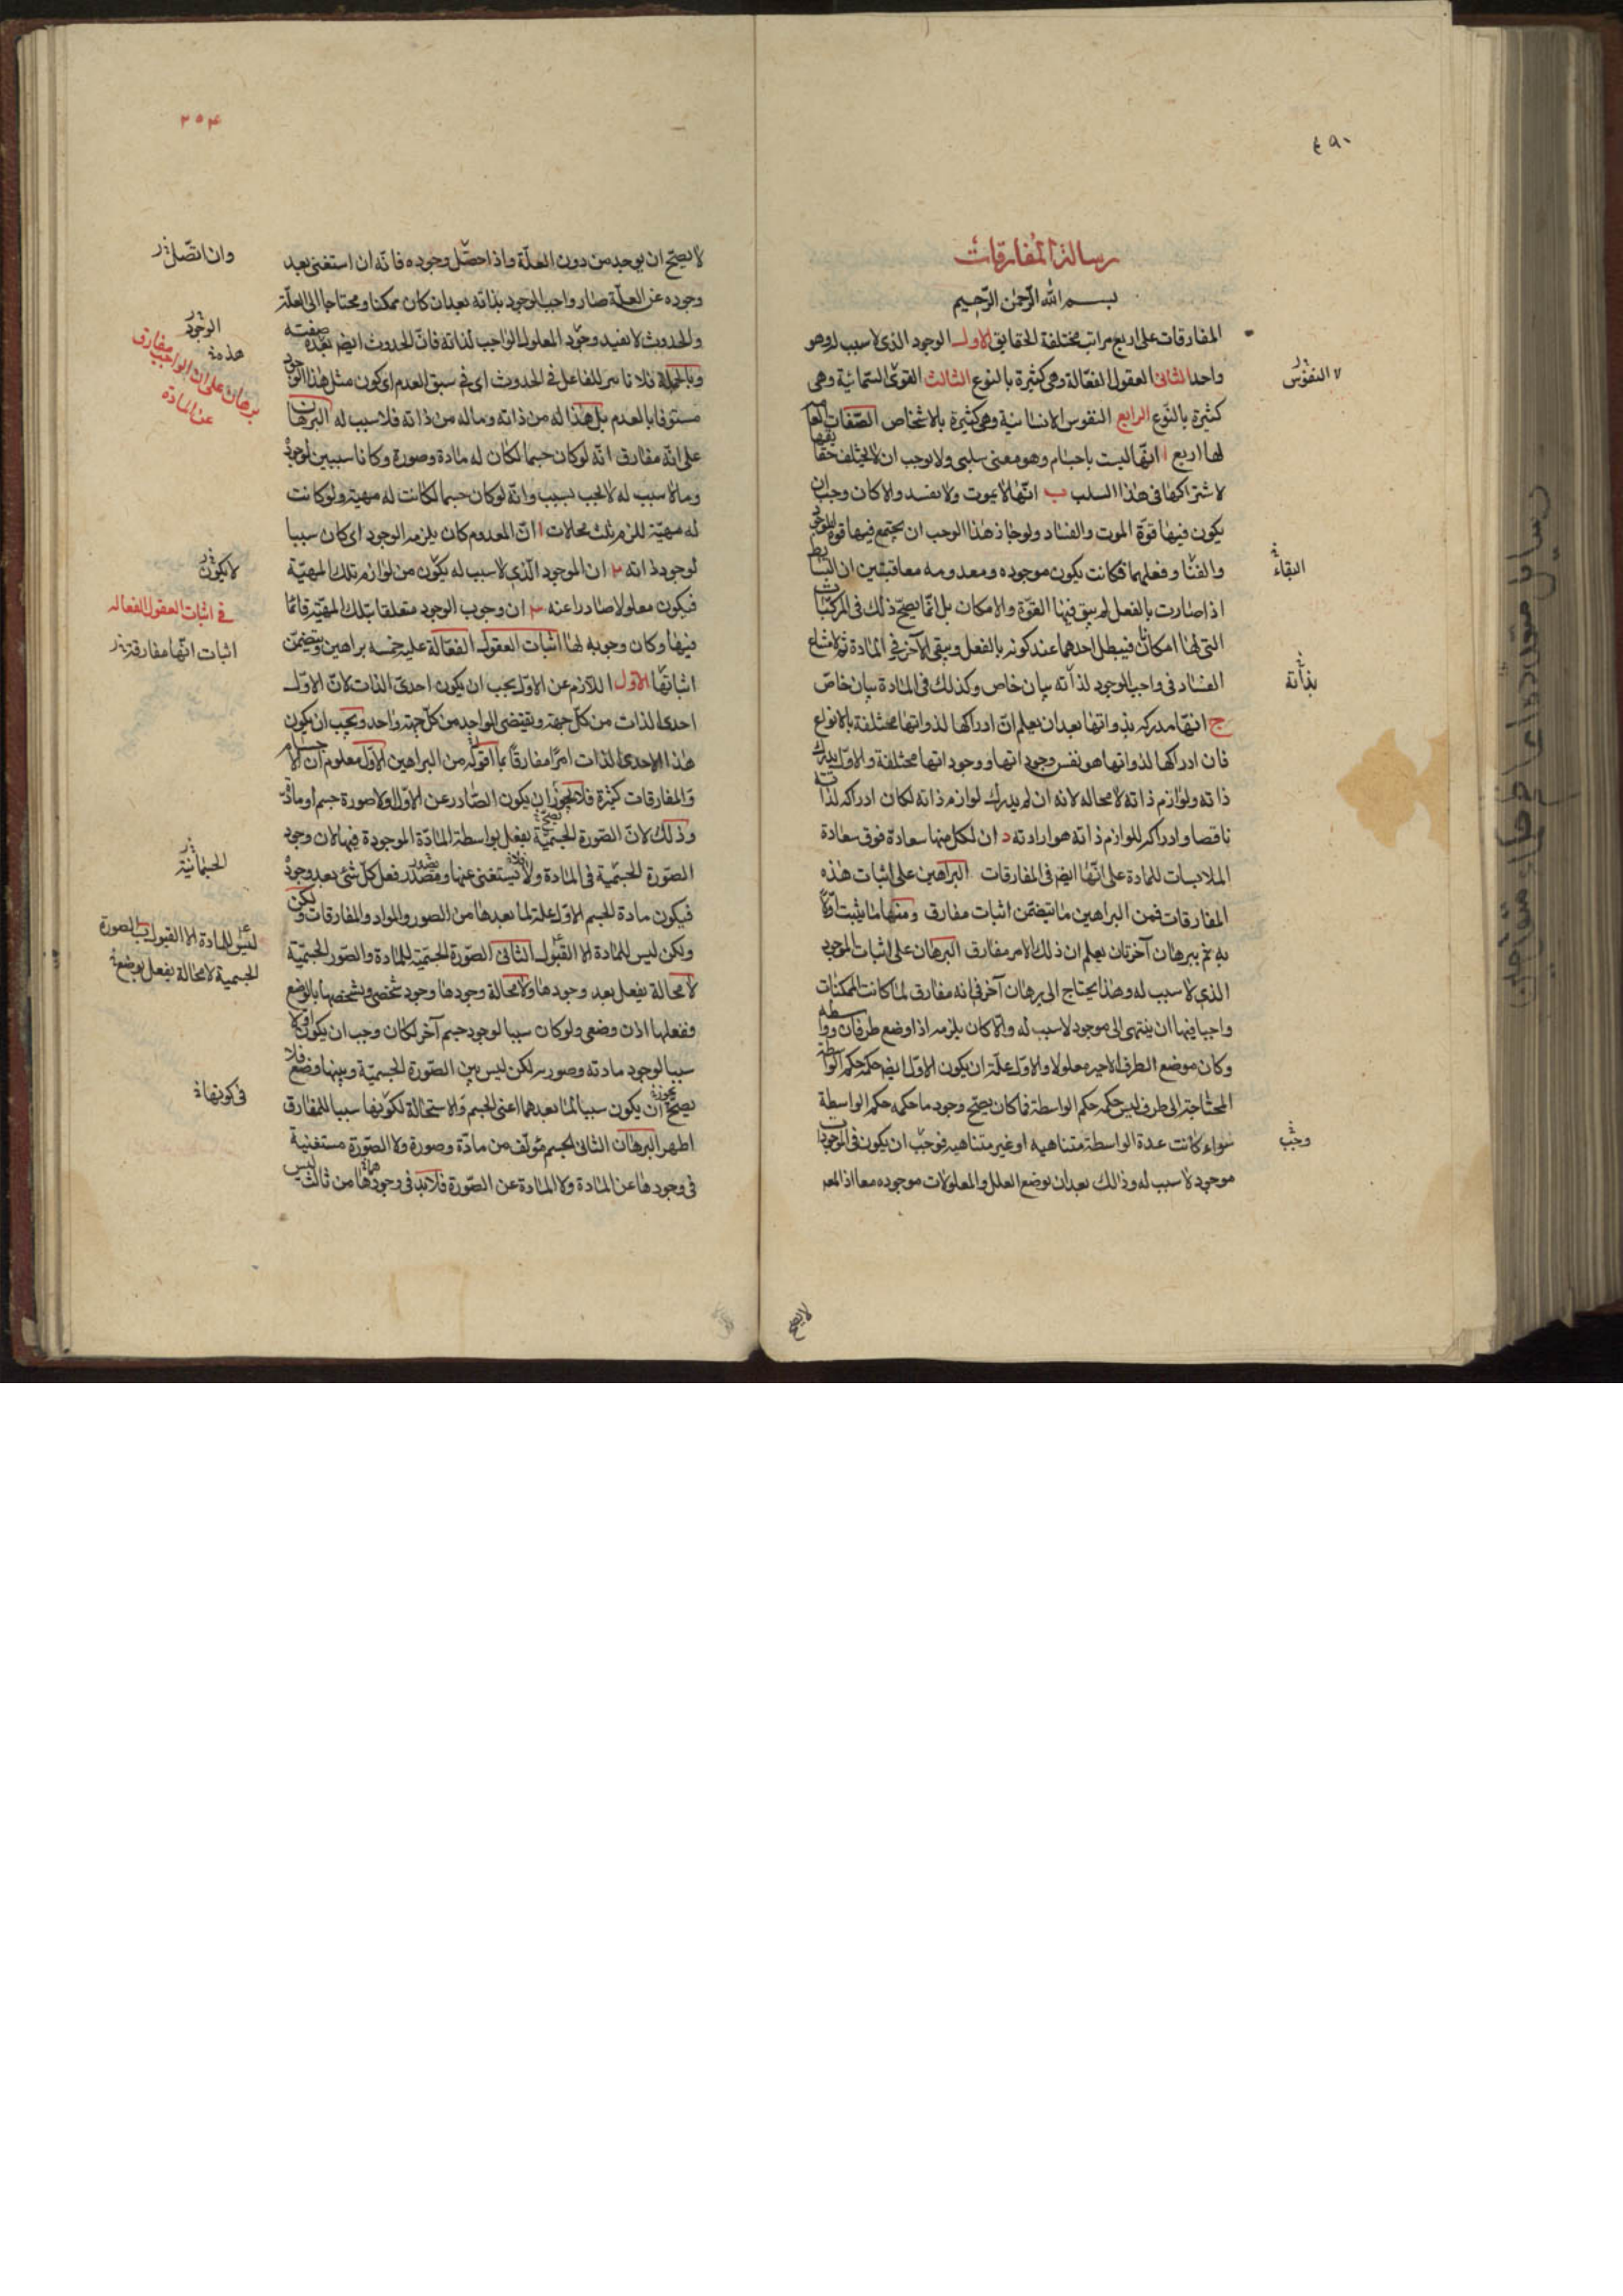 ٤٩٠
رسالة المفارقات
بسم الله الرحمن الرحيم
المفارقات على اربع مراتب مختلفة الحقايق الاول الوجود الذى لا سبب له وهو
واحد الثانى العقول الفعّالة وهى كثيرة بالنوع الثالث القوى السمائية وهى
كثيرة بالنوع الرابع النفوس الانسانية وهى كثيرة بالاشخاص الصفات العا
لها اربع ا انّها ليست باجسام وهو معنى سلبى ولا يوجب ان لا يختلف حقا يقها
لاشتراكها فى هذا السلب ب انّها لا يموت ولا يفسد والا كان وجب ان
يكون فيها قوة الموت والفساد ولو جاز هذا الوجب ان يجتمع فيها قوة الوجود
والفنا وفعلهما فكانت يكون موجوده ومعدومه معا فبين ان البسا يط
اذا صارت بالفعل لم يبق فيها القوة والامكان بل انّما يصحّ ذلك فى المركبات
التى لها امكانان فيبطل احدهما عند كونه بالفعل ويبقى الآخر فى المادة ثم لامتناع
الفساد فى واجب الوجود لذاته بيان خاص وكذلك فى المادة بيان خاصّ
ج انّها مدركه بذواتها بعد ان يعلم انّ ادراكها لذواتها مختلفة بالانواع
فان ادراكها لذواتها هو نفس وجوداتها ووجوداتها مختلفة والاوّل يدرك
ذاته ولوازم ذاته لا محاله لانه ان لم يدرك لوازم ذاته لكان ادراكه لذاته
ناقصا وادراكه للوازم ذاته هو ارادته د ان لكل منها سعادة فوق سعادة
الملابسات للمادة على انّها ايضا فى المفارقات البراهين على اثبات هذه
المفارقات فمن البراهين ما يتضمّن اثبات مفارق ومنها ما يثبت اوّلا
به ثم ببرهان آخر بان يعلم ان ذلك الامر مفارق البرهان على اثبات الموجود
الذى لا سبب له وهذا يحتاج الى برهان آخر فى انه مفارق لما كانت الممكنات
واجبا فيها ان ينتهى الى موجود لا سبب له والا كان يلزم اذا وضع طرفان وواسطه
وكان موضع الطرف الاخير معلولا والاول علّة ان يكون الاوّل ايضا حكمه حكم الواسطة
المحتاجة الى طرف ليس حكمه حكم الواسطة فما كان يصحّ وجود ما حكمه حكم الواسطة
سواء كانت عدة الواسطة متناهيه او غير متناهيه فوجب ان يكون فى الموجودات
موجود لا سبب له وذالك بعد ان يوضع العلل والمعلولات موجوده معا اذ المعـ
لا النفوس
البقاء
بذاته
وجب
لا يصح
٢٥٤
لا يصحّ ان يوجد من دون العلّة واذا حصّل وجوده فانّه ان استغنى بعد
وجوده عن العلّة صار واجب الوجود بذاته بعد ان كان ممكنا ومحتاجا الى العلّة
والحدوث لا يفيد وجود المعلول الواجب لذاته فانّ الحدوث ايضا بعده صفته
وبالجملة فلا تاثير للفاعل فى الحدوث اى فى سبق العدم اى كون مثل هذا الوجود
مستوفا بالعدم بل هذا له من ذاته وماله من ذاته فلا سبب له البرهان
على انّه مفارق انّه لو كان جسما لكان له مادة وصورة وكانا سببين لوجوده
وما لا سبب له لا يجب بسبب وانّه لو كان جسما لكانت له مهية ولو كانت
له مهيّة للزم ثلث محالات ا انّ المعدوم كان يلزمه الوجود اى كان سببا
لوجود ذاته ٢ ان الموجود الّذى لا سبب له يكون من لوازم تلك المهيّة
فيكون معلولا صادرا عنه ٣ ان وجوب الوجود متعلقا بتلك المهيّة قائما
فيها وكان وجوبه لها اثبات العقول الفعّالة عليه خمسه براهين ويتضمّن
اثباتها الاول اللازم عن الاوّل يجب ان يكون احدىّ الذات لانّ الاوّل
احدى الذات من كلّ جهة ويقتضى الواحد من كلّ جهة واحد ويجب ان يكون
هذا الاحدى الذات امرا مفارقا بما اقوله من البراهين الاوّل معلوم ان الاجسام
والمفارقات كثيرة فلا يجوز ان يكون الصّادر عن الاوّل ولا صورة جسم او مادّة
وذلك لانّ الصّورة الجسميّة يفعل بواسطة المادّة الموجودة فيها لان وجود
الصّورة الجسميّة فى المادة ولا يستغنى عنها ومصدر فعل كلّ شئ بعد وجوده
فيكون مادة الجسم الاوّل علة لما بعدها من الصور والمواد والمفارقات ولكن
ولكن ليس للمادة الا القبول الثانى الصّورة الجسميّة للمادة والصّور الجسميّة
لا محالة يفعل بعد وجودها ولا محالة وجودها وجود شخصى وتشخصها بالوضع
وفعلها اذن وضعى ولو كان سببا لوجود جسم آخر لكان وجب ان يكون اوّلا
سببا لوجود مادته وصورته لكن ليس بين الصّورة الجسميّة وبينها وضع فلا
يصحّ ان يكون سببا لما بعدهما اعنى الجسم والاستحالة لكونها سببا للمفارق
اظهر البرهان الثانى الجسم مؤلّف من مادّة وصورة ولا الصّورة مستغنية
فى وجودها عن المادة ولا المادة عن الصّورة فلا بد فى وجودها من ثالث ليس
وان اتّصل
الوجود
هذه
برهان على ان الواجب مفارق
عن المادة
لا يكون
فى اثبات العقول الفعاله
اثبات انّها مفارقة
الجسمانية
ليس للمادة الا القبول بالصورة
الجسمية لا محالة يفعل بوضع
فى كونها